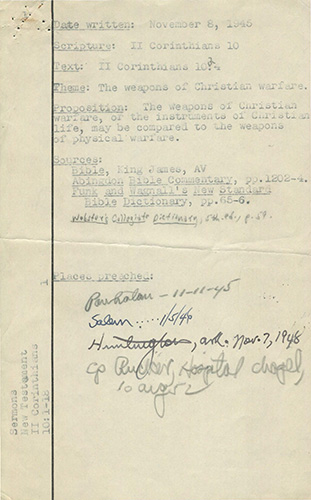 Date written: November 8, 1945
Scripture: II Corinthians 10
Text: II Corinthians 10:4
Theme: The weapons of Christian warfare.
Proposition: The Weapons of Christian
warfare, or the instruments of Christian
life, may be compared to the weapons
of physical warfare.
Sources:
Bible, King James, AV
Abingdon Bible Commentary, pp.1202-4.
Funk and Wagnall's New Standard
Bible Dictionary, pp.65-6.
Webster's Collegiate Dictionary, 5th ed., p. 59.
1 Places preached:
11-11-45
Salem .... 1/5/46
Huntington, ark. Nov. 7, 1948
Cp Rucker, Hospital chapel,
10 aug 52
Sermons
New Testament
II Corinthians
10:1-18